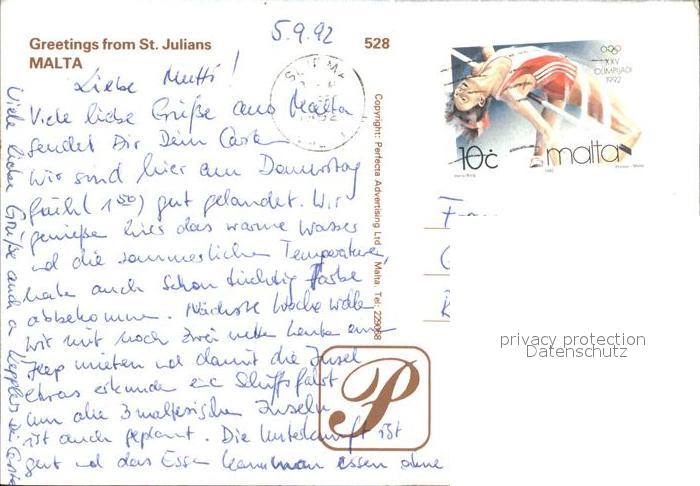 5.9.92
Greetings from St. Julians
MALTA
528
XXV
OLIMPIJADI
1992
10c
malta
Copyright: Perfecta Advertising Ltd. - Malta. Tel: 229068
Liebe Mutti!
Viele liebe Grüße aus Malta
sendet Dir Dein
Wir sind hier am Donnerstag
früh (1 50) gut gelandet. Wir
genießen hier das warme Wasser
und die sommerlichen Temperaturen,
habe auch schon tüchtig Farbe
abbekommen. Nächste Woche wollen
wir mit noch zwei netten Leuten einen
Jeep mieten und damit die Insel
etwas erkunden eine Schiffsfahrt
um die 3 maltesischen Inseln
ist auch geplant. Die Unterkunft ist
gut und das Essen kann man essen ohne
Viele liebe Grüße auch an
P
privacy protection
Datenschutz